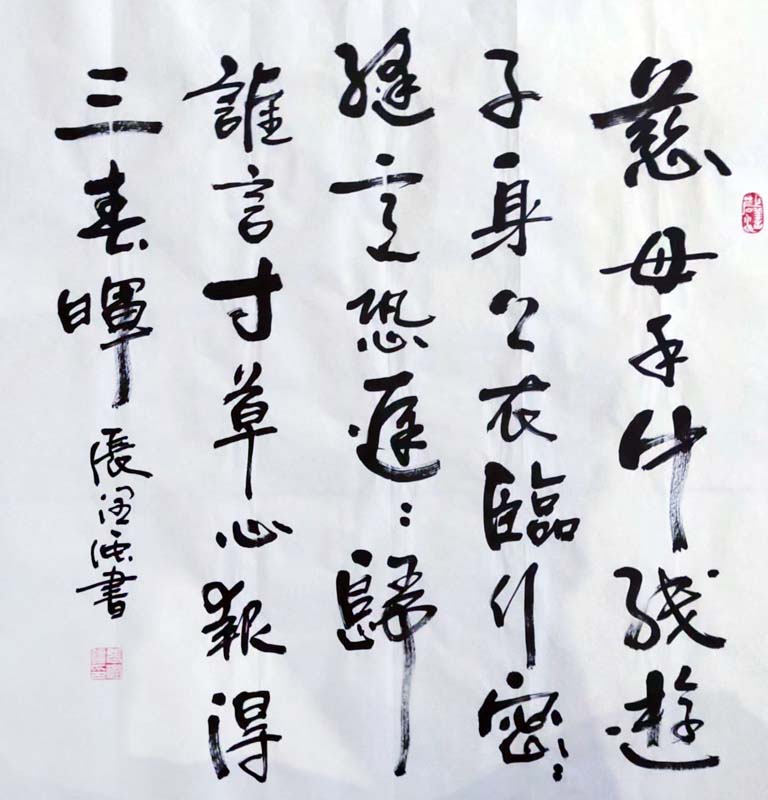 慈母手中线遊
子身上衣臨行密々
縫意恐遲々歸
誰言寸草心報得
三春暉
張書